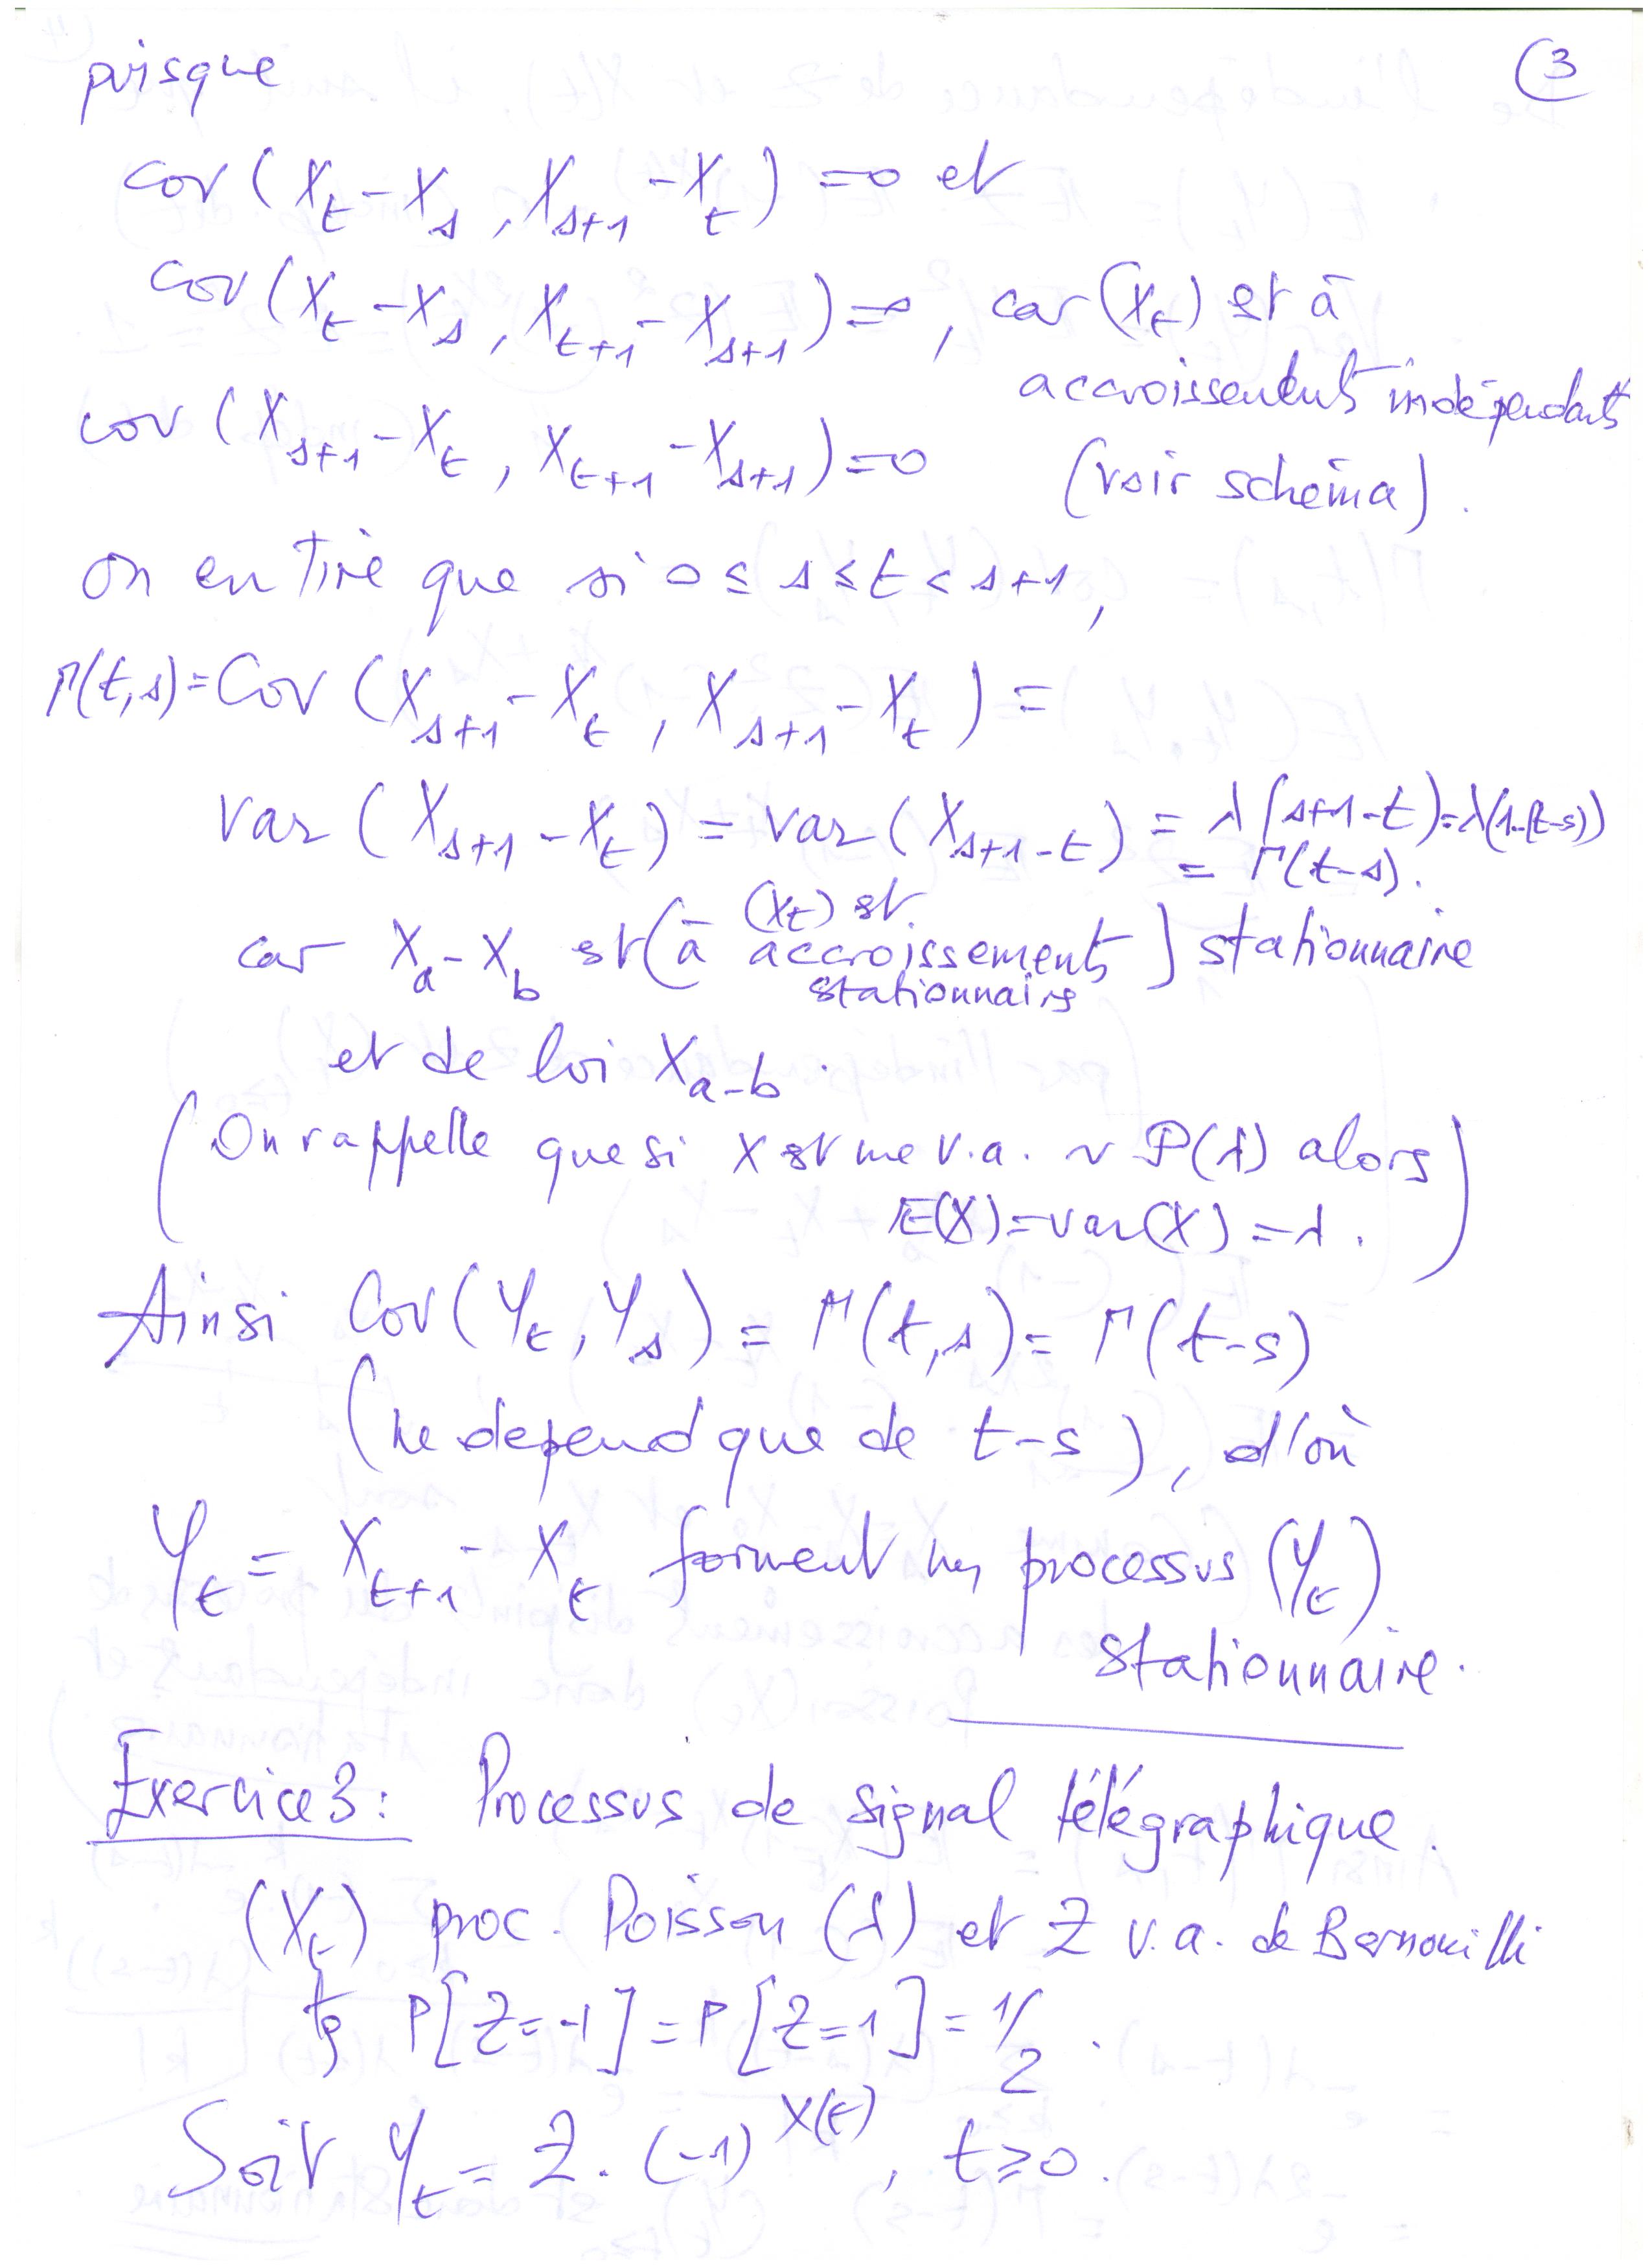 puisque
3
cov (X_t - X_s, X_{s+1} - X_t) = 0 et
cov (X_t - X_s, X_{t+1} - X_{s+1}) = 0, car (X_t) est à
accroissements indépendants
cov (X_{s+1} - X_t, X_{t+1} - X_{s+1}) = 0 (voir schéma).
On en tire que si 0 ≤ s ≤ t < s+1,
Γ(t,s) = Cov (X_{s+1} - X_t, X_{s+1} - X_t) =
var (X_{s+1} - X_t) = var (X_{s+1-t}) = λ(s+1-t) = λ(1-(t-s))
= Γ(t-s).
car X_a - X_b est (à accroissements) stationnaire
(X_t) est
stationnaires
et de loi X_{a-b}.
(On rappelle que si X est une v.a. ~ P(λ) alors
E(X) = var(X) = λ.)
Ainsi Cov (Y_t, Y_s) = Γ(t,s) = Γ(t-s)
(ne depend que de t-s), d'où
Y_t = X_{t+1} - X_t forment un processus (Y_t)
stationnaire.
Exercice 3: Processus de signal télégraphique.
(X_t) proc. Poisson (λ) et Z v.a. de Bernouilli
tq P[Z=-1] = P[Z=1] = 1/2.
Soit Y_t = Z. (-1)^{X(t)}, t ≥ 0.